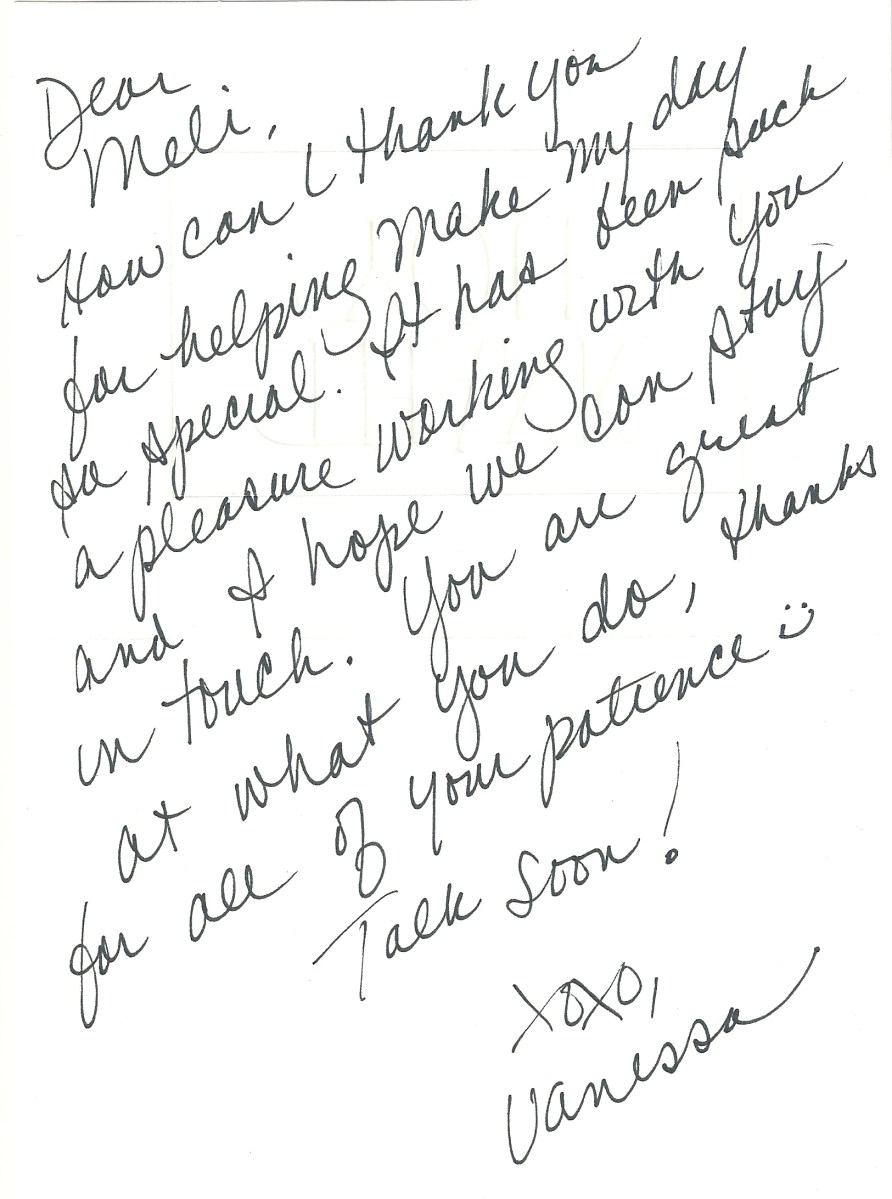 Dear
Meli,
How can I thank you
for helping make my day
so special. It has been such
a pleasure working with you
and I hope we can stay
in touch. You are great
at what you do, thanks
for all of your patience :)
Talk Soon!
XOXO,
Vanessa